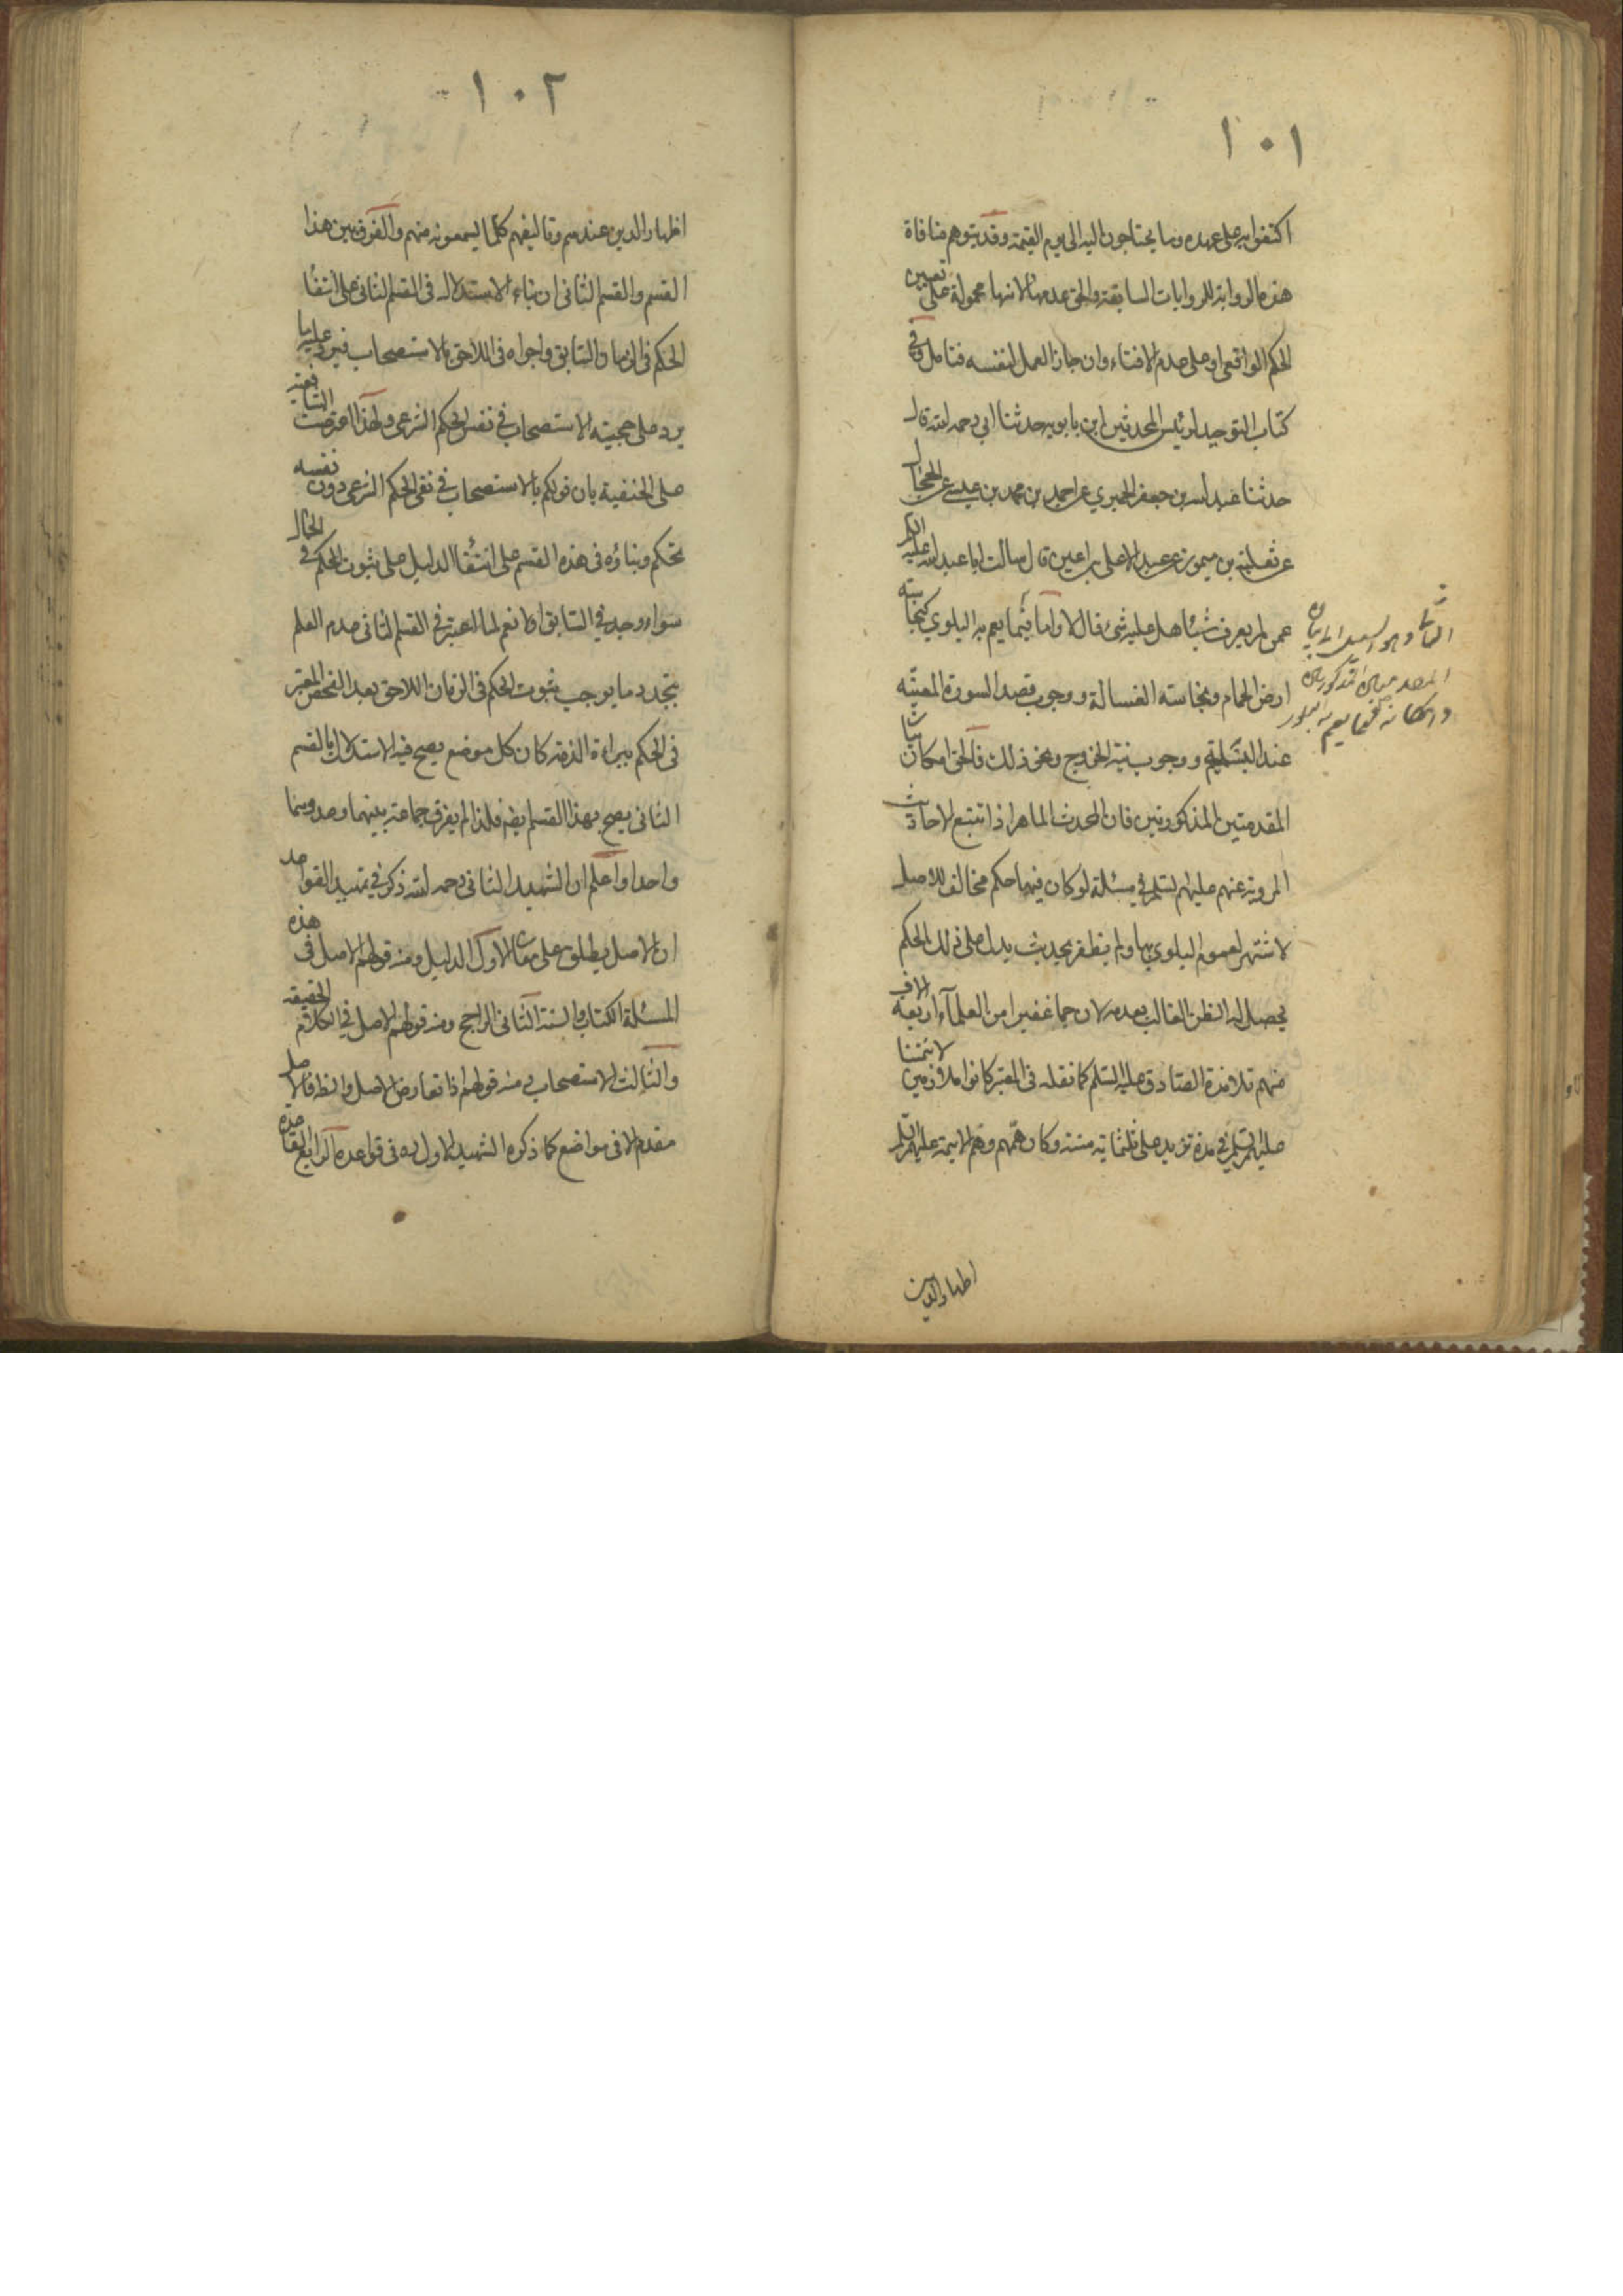 ١٠١
اكتفوا به على عهده وما يحتاجون اليه الى يوم القيمة وقد يتوهم منافاة
هذه الرواية للروايات السابقة والحق عدمها لانها محمولة على تعيين
الحكم الواقعى او على عدم الافتاء وان جاز العمل لنفسه فتامل وفى
كتاب التوحيد لرئيس المحدثين ابن بابويه حدثنا ابي رحمه الله قال
حدثنا عبد الله بن جعفر الحميري عن احمد بن محمد بن عيسى عن الحجال
عن ثعلبة بن ميمون عن عبد الاعلى بن اعين قال سالت ابا عبد الله عليه السلم
عمن لم يعرف شيئا هل عليه شىء قال لا واما فيما يعم به البلوي كنجاسة
ارض الحمام ونجاسة الغسالة ووجوب قصد السورة المعينة
عند البسملة ووجوب نية الخروج ونحو ذلك فالحق امكان اثبات
المقدمتين المذكورتين فان المحدث الماهر اذا تتبع الاحاديث
المروية عنهم عليهم السلم في مسئلة لو كان فيها حكم مخالف للاصل
لاشتهر لعموم البلوي بها ولم يظفر بحديث يدل على ذلك الحكم
يحصل له الظن الغالب بعدمه لان جما غفيرا من العلماء اربعة الاف
منهم تلامذة الصادق عليه السلم كما نقله فى المعتبر كانوا ملازمين لائمتنا
عليهم السلم في مدة تزيد على ثلثمائة سنة وكان همهم وهم الائمة عليهم السلم
اظهار الدين
١٠٢
اظهار الدين عندهم وتاليفهم كلما يسمعونه منهم والفرق بين هذا
القسم والقسم الثانى ان بناء الاستدلال فى القسم الثانى على انتفاء
الحكم فى الزمان السابق واجراه فى اللاحق بالاستصحاب فيرد عليه ما
يرد على حجية الاستصحاب في نفس الحكم الشرعى ولهذا اعترضت الشافعية
على الحنفية بان قولكم بالاستصحاب في نفى الحكم الشرعى دون نفسه
تحكم وبناؤه فى هذه القسم على انتفاء الدليل على ثبوت الحكم في الحال
سواء وجد في السابق او لا نعم لما اعتبر في القسم الثانى عدم العلم
بتجدد ما يوجب ثبوت الحكم فى الزمان اللاحق بعد الفحص المعتبر
فى الحكم ببراءة الذمة كان كل موضع يصح فيه الاستدلال بالقسم
الثانى يصح بهذا القسم ايضا فلذا لم يفرق جماعة بينهما وعدوهما
واحدا واعلم ان الشهيد الثانى رحمه الله ذكر في تمهيد القواعد
ان الاصل يطلق على معان الاول الدليل ومنه قولهم الاصل فى هذه
المسئلة الكتاب والسنة الثانى الراجح ومنه قولهم الاصل في الكلام الحقيقة
والثالث الاستصحاب ومنه قولهم اذا تعارض الاصل والظ فالاصل
مقدم الا فى مواضع كما ذكره الشهيد الاول ره فى قواعده الرابع القاعدة